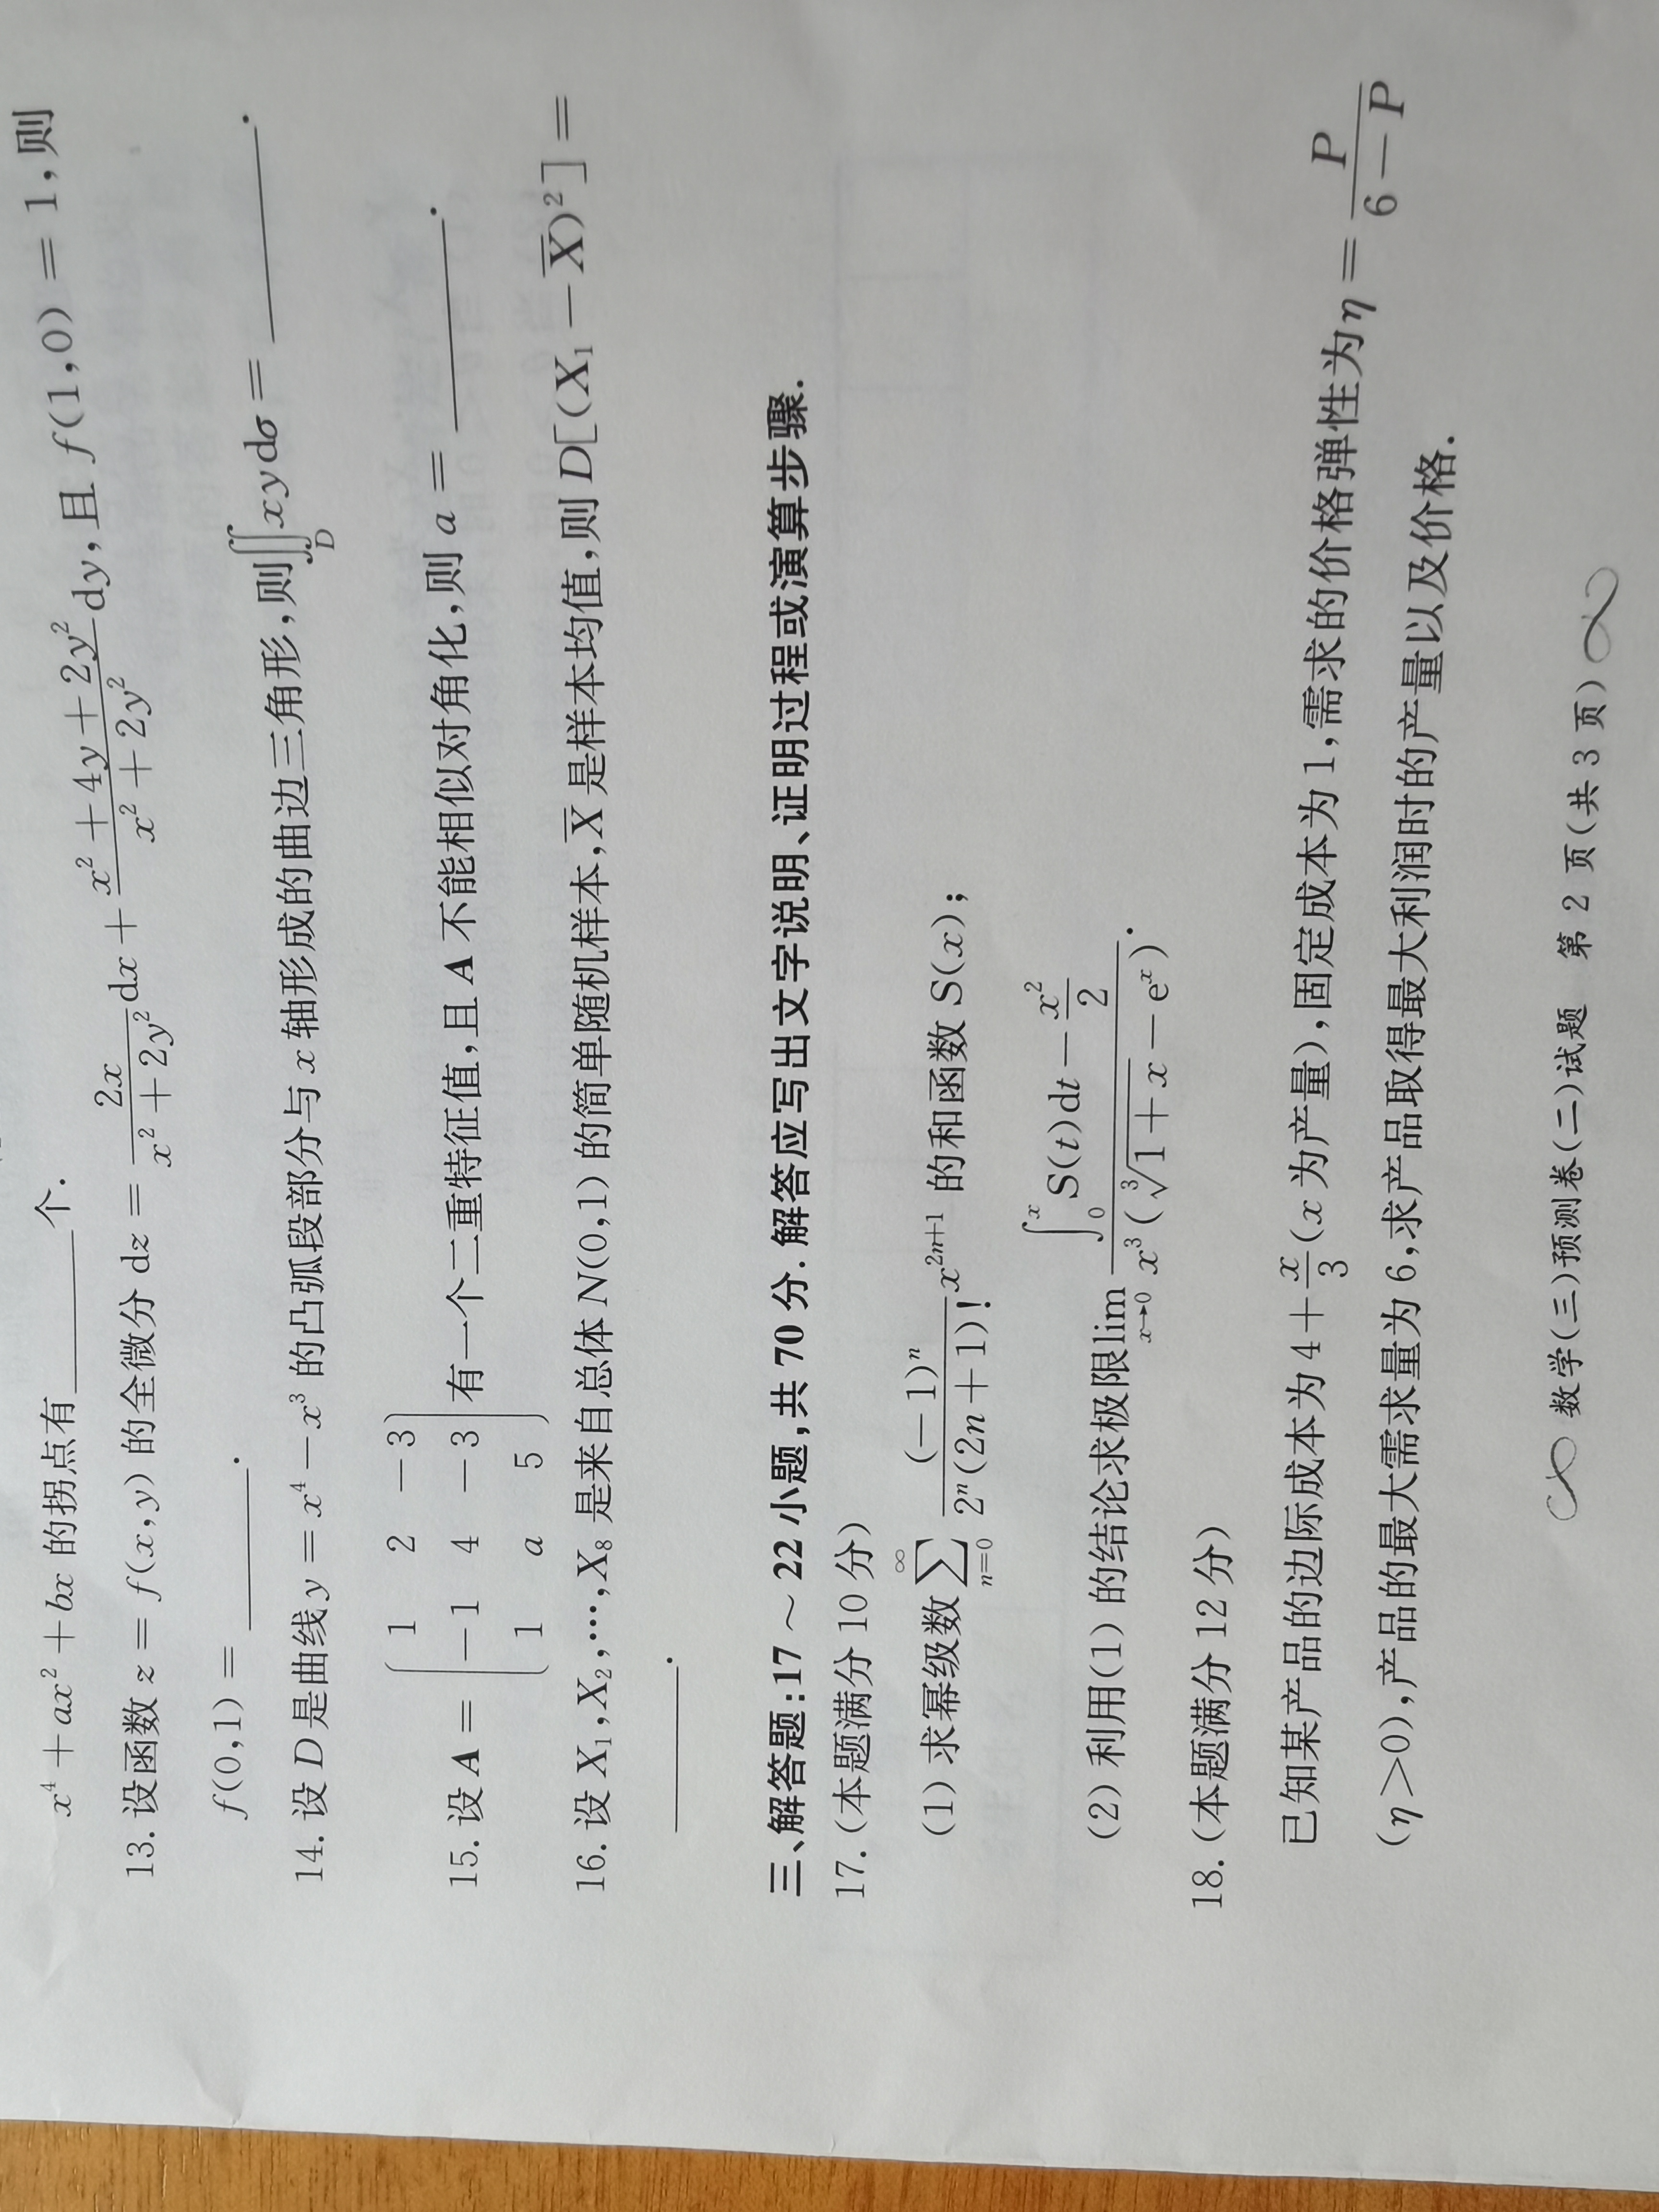 x⁴ + ax² + bx 的拐点有______个.
13. 设函数 z = f(x,y) 的全微分 dz = \frac{2x}{x² + 2y²}dx + \frac{x² + 4y + 2y²}{x² + 2y²}dy,且 f(1,0) = 1,则
f(0,1) = ______.
14. 设 D 是曲线 y = x⁴ − x³ 的凸弧段部分与 x 轴形成的曲边三角形,则∬_D xydσ = ______.
15. 设 A = \begin{pmatrix} 1 & 2 & −3 \\ −1 & 4 & −3 \\ 1 & a & 5 \end{pmatrix} 有一个二重特征值,且 A 不能相似对角化,则 a = ______.
16. 设 X₁,X₂,⋯,X₈ 是来自总体 N(0,1) 的简单随机样本,\overline{X} 是样本均值,则 D[(X₁ − \overline{X})²] =
______.
三、解答题:17 ~ 22 小题,共 70 分. 解答应写出文字说明、证明过程或演算步骤.
17. (本题满分 10 分)
(1) 求幂级数 \sum_{n=0}^{∞} \frac{(−1)^n}{2^n(2n + 1)!}x^{2n+1} 的和函数 S(x);
(2) 利用(1) 的结论求极限 \lim_{x→0} \frac{\int_0^x S(t)dt − \frac{x²}{2}}{x³(\sqrt[3]{1 + x} − e^x)}.
18. (本题满分 12 分)
已知某产品的边际成本为 4 + \frac{x}{3}(x 为产量),固定成本为 1,需求的价格弹性为 η = \frac{P}{6 − P}
(η > 0),产品的最大需求量为 6,求产品取得最大利润时的产量以及价格.
数学(三)预测卷(二)试题 第 2 页(共 3 页)